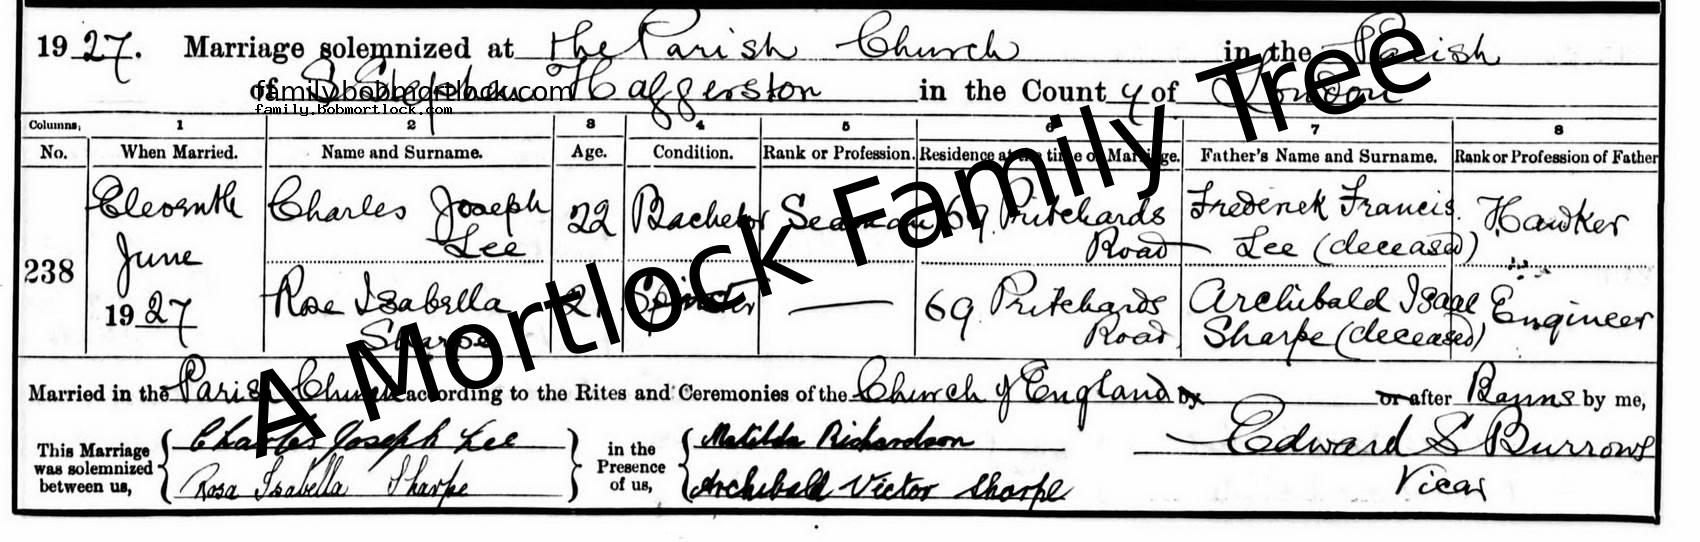 1927. Marriage solemnized at the Parish Church in the Parish
of S. Stephen Haggerston in the County of London
family.bobmortlock.com
family.bobmortlock.com
Columns, 1 2 3 4 5 6 7 8
No. When Married. Name and Surname. Age. Condition. Rank or Profession. Residence at the time of Marriage. Father's Name and Surname. Rank or Profession of Father
238 Eleventh June 1927 Charles Joseph Lee 22 Bachelor Seaman 69 Pritchards Road Frederick Francis Lee (deceased) Hawker
Rose Isabella Sharpe 21 Spinster — 69 Pritchards Road Archibald Isaac Sharpe (deceased) Engineer
Married in the Parish Church according to the Rites and Ceremonies of the Church of England by or after Banns by me,
This Marriage was solemnized between us, Charles Joseph Lee in the Presence of us, Matilda Richardson Edward S Burrows
Rosa Isabella Sharpe Archibald Victor Sharpe Vicar
A Mortlock Family Tree